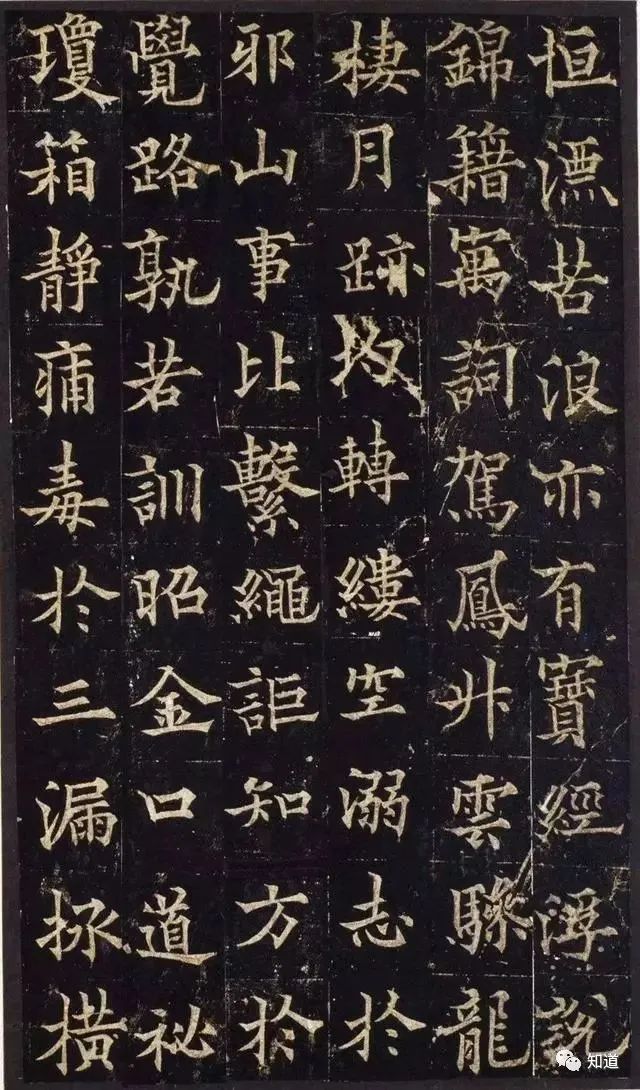 恒漂苦浪亦有寶經浮說
錦籍寓詞駕鳳升雲驂龍
棲月跡均轉縷空溺志於
邪山事比繫繩詎知方於
覺路孰若訓昭金口道祕
瓊箱靜痡毒於三漏拯橫
知道